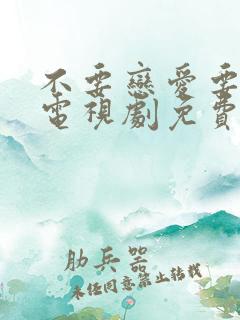 不要戀愛要
電視劇免費
肋兵器
未任同意禁止转载